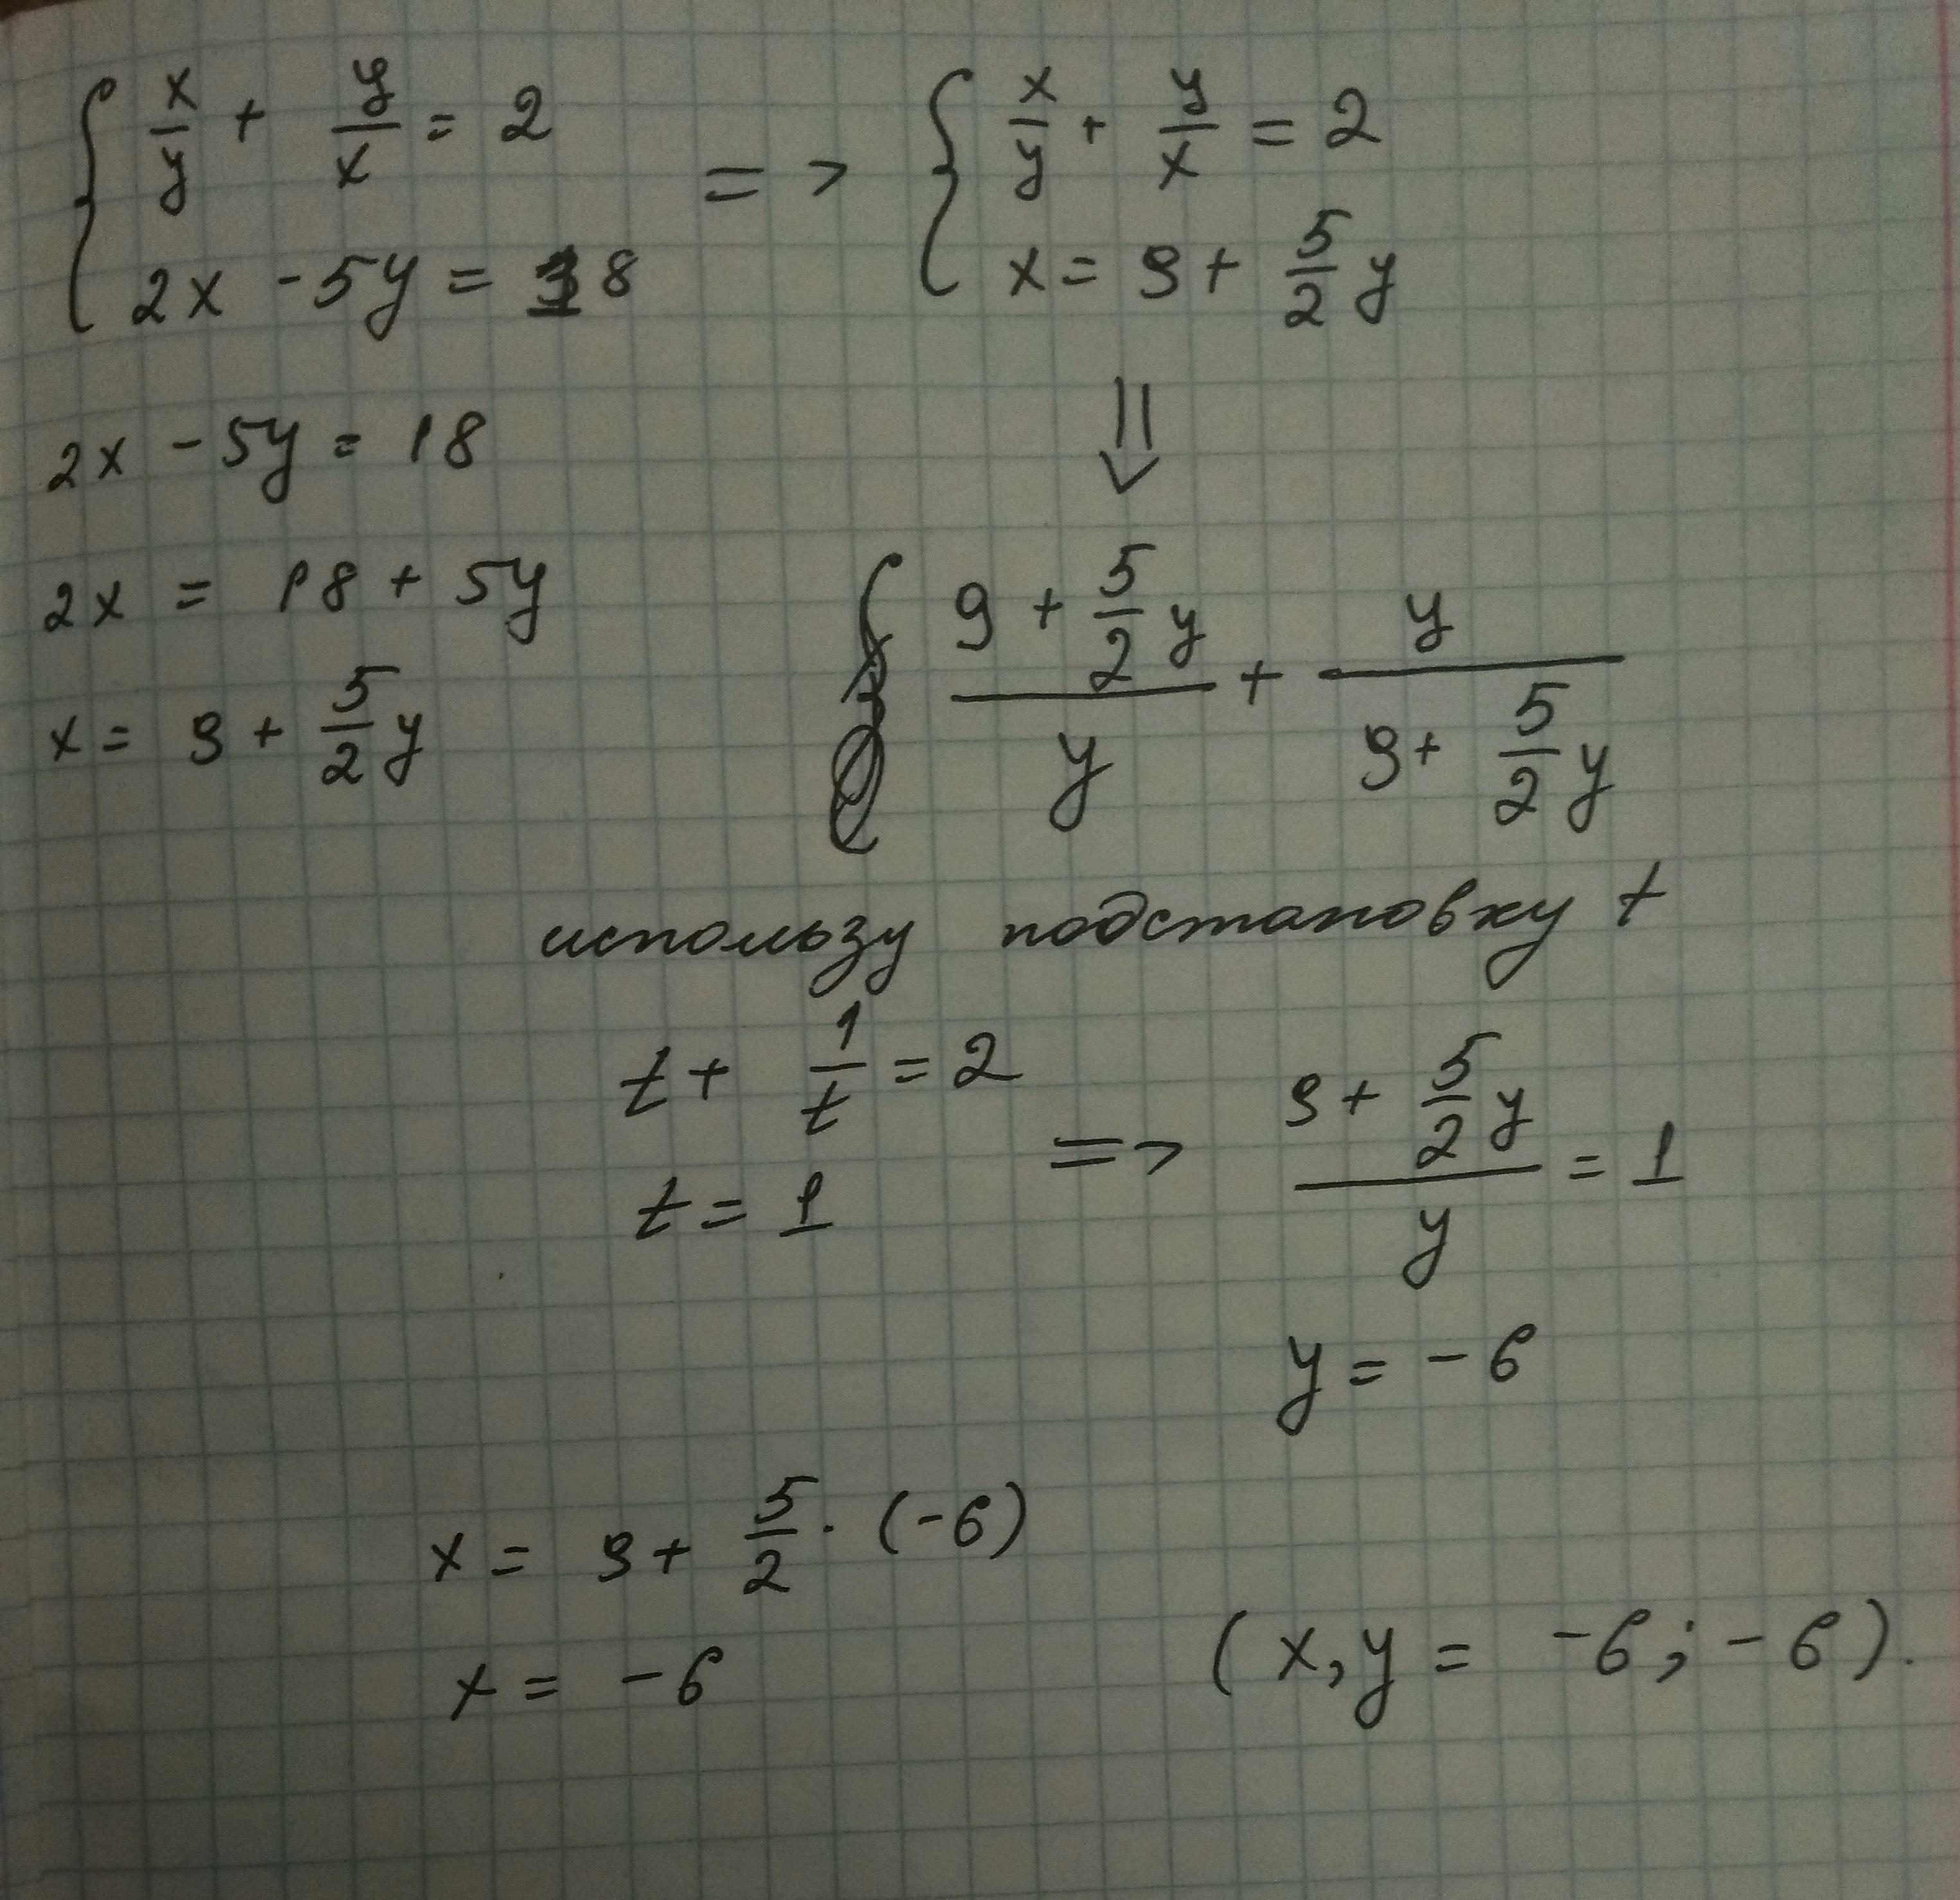 { x/y + y/x = 2
2x - 5y = 18
=> { x/y + y/x = 2
x = 9 + 5/2 y
2x - 5y = 18
2x = 18 + 5y
x = 9 + 5/2 y
⇓
(9 + 5/2 y)/y + y/(9 + 5/2 y)
использу подстановку t
t + 1/t = 2
t = 1
=> (9 + 5/2 y)/y = 1
y = -6
x = 9 + 5/2 · (-6)
x = -6
(x, y = -6; -6).